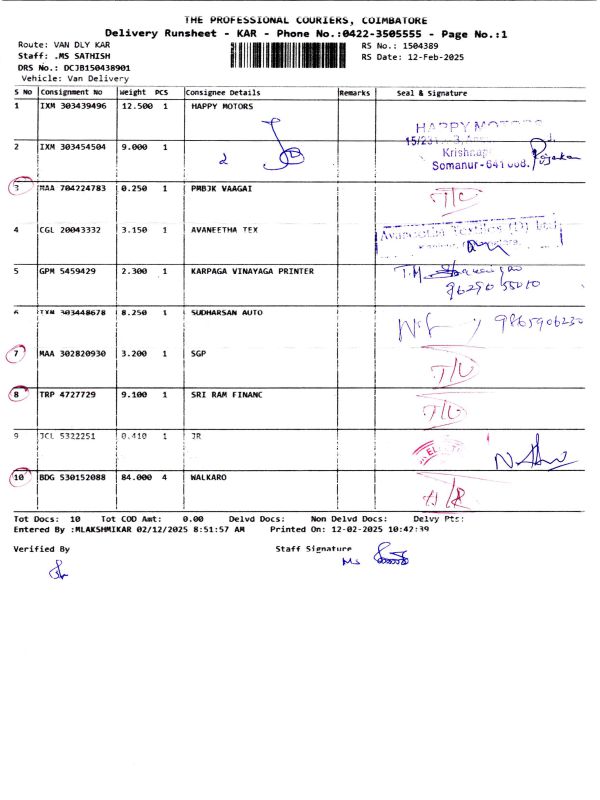 THE PROFESSIONAL COURIERS, COIMBATORE
Delivery Runsheet - KAR - Phone No.:0422-3505555 - Page No.:1
Route: VAN DLY KAR RS No.: 1504389
Staff: .MS SATHISH RS Date: 12-Feb-2025
DRS No.: DCJB150438901
Vehicle: Van Delivery
S No Consignment No Weight PCS Consignee Details Remarks Seal & Signature
1 IXM 303439496 12.500 1 HAPPY MOTORS
HAPPY MOTORS
2 IXM 303454504 9.000 1
2
Krishnap
Somanur-641 668.
3 MAA 704224783 0.250 1 PMBJK VAAGAI
4 CGL 20043332 3.150 1 AVANEETHA TEX
Avaneetha Textiles (P) Ltd
5 GPM 5459429 2.300 1 KARPAGA VINAYAGA PRINTER
96290 55010
6 IXM 303448678 8.250 1 SUDHARSAN AUTO
9865906230
7 MAA 302820930 3.200 1 SGP
8 TRP 4727729 9.100 1 SRI RAM FINANC
9 JCL 5322251 0.410 1 JR
10 BDG 530152088 84.000 4 WALKARO
Tot Docs: 10 Tot COD Amt: 0.00 Delvd Docs: Non Delvd Docs: Delvy Pts:
Entered By :MLAKSHMIKAR 02/12/2025 8:51:57 AM Printed On: 12-02-2025 10:42:39
Verified By Staff Signature
Ms